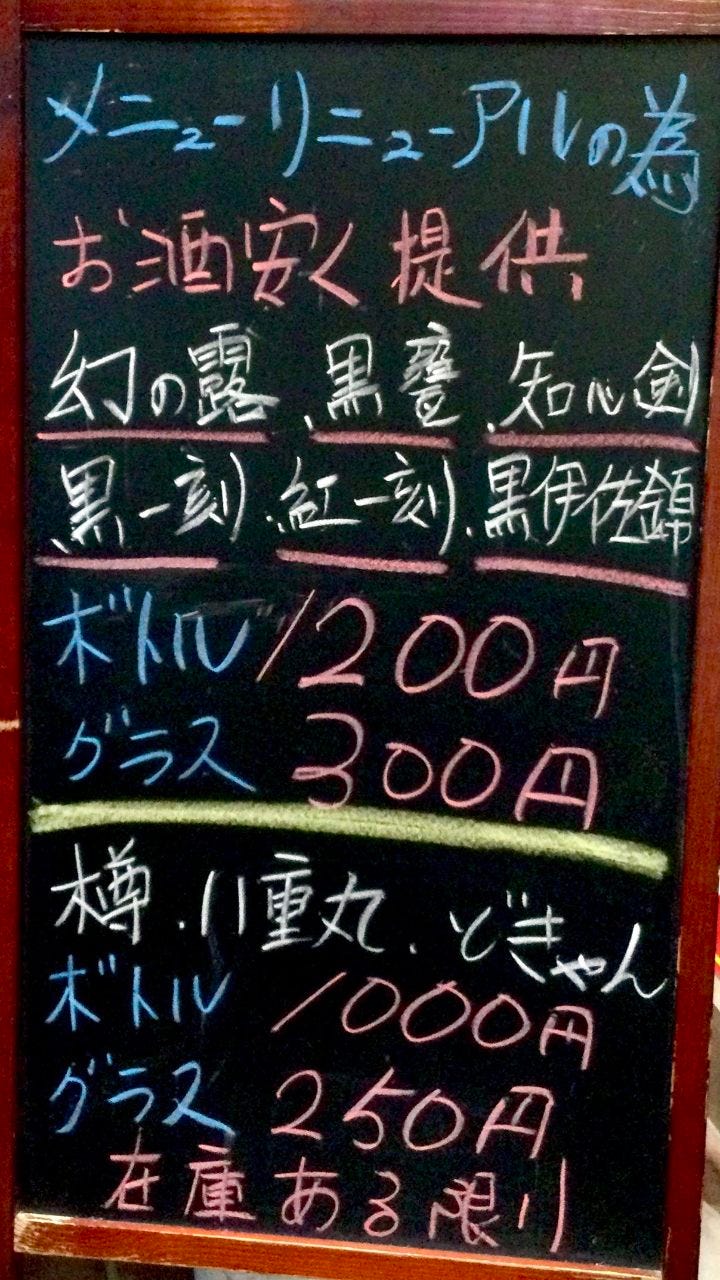 メニューリニューアルの為
お酒安く提供
幻の露、黒甕、知心剣
黒一刻、紅一刻、黒伊佐錦
ボトル 1200円
グラス 300円
樽、八重丸、どきゃん
ボトル 1000円
グラス 250円
在庫ある限り